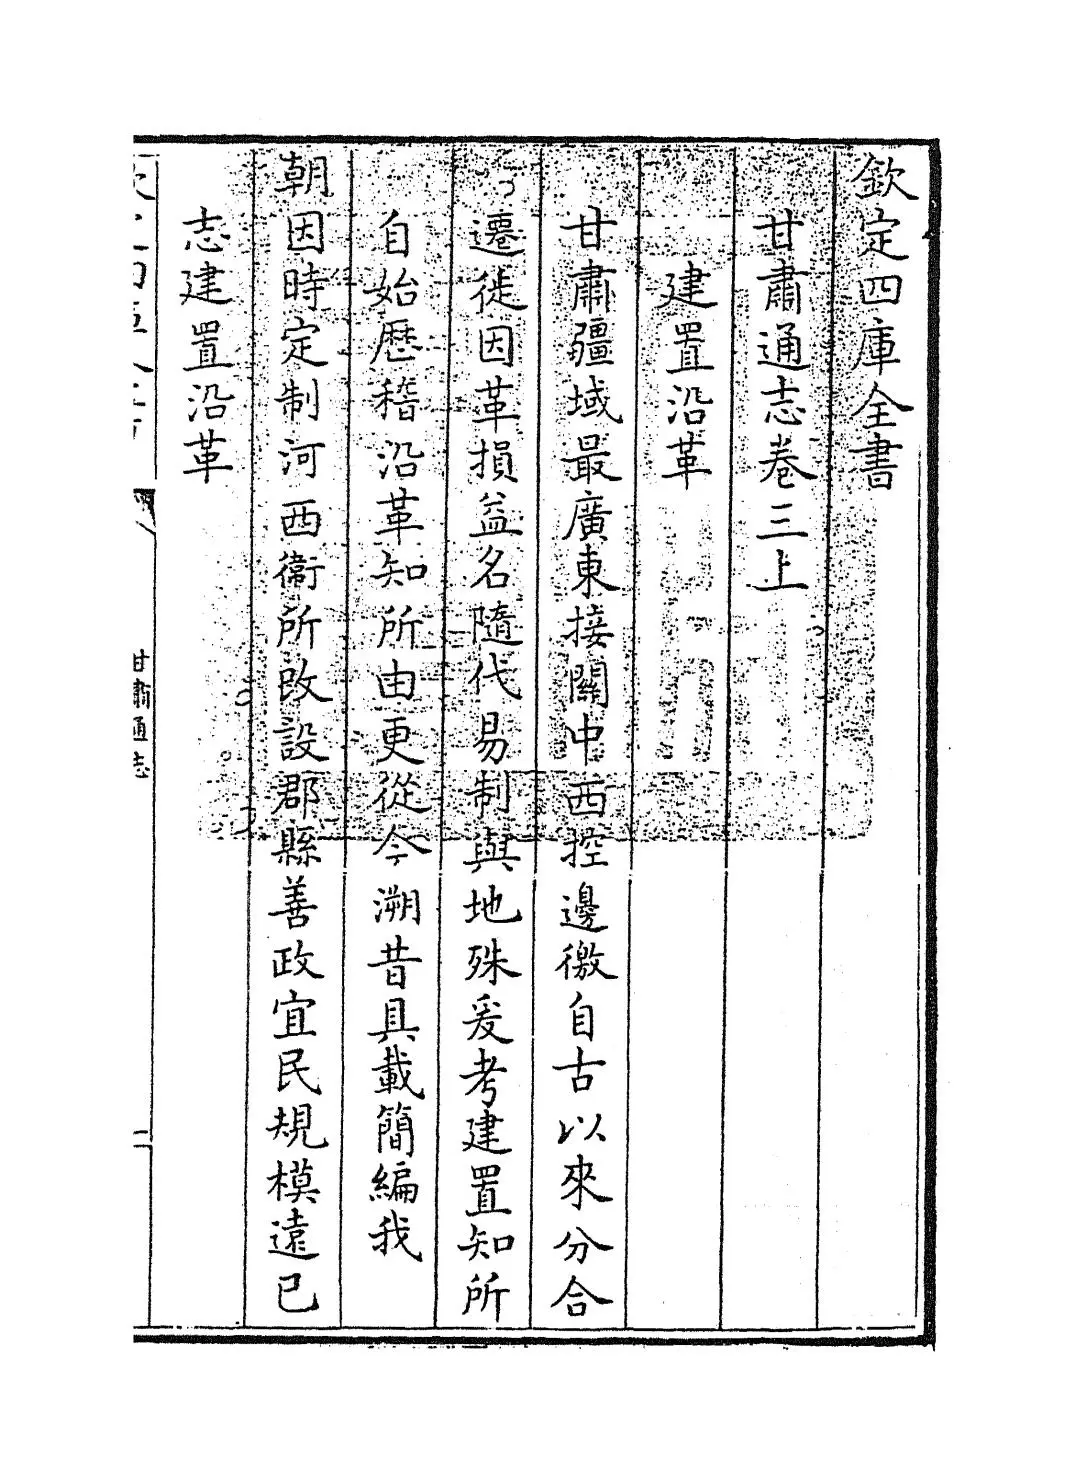 欽定四庫全書
甘肅通志卷三上
建置沿革
甘肅疆域最廣東接關中西控邊徼自古以來分合
遷徙因革損益名隨代易制與地殊爰考建置知所
自始歷稽沿革知所由更從今溯昔具載簡編我
朝因時定制河西衞所改設郡縣善政宜民規模遠已
志建置沿革
甘肅通志